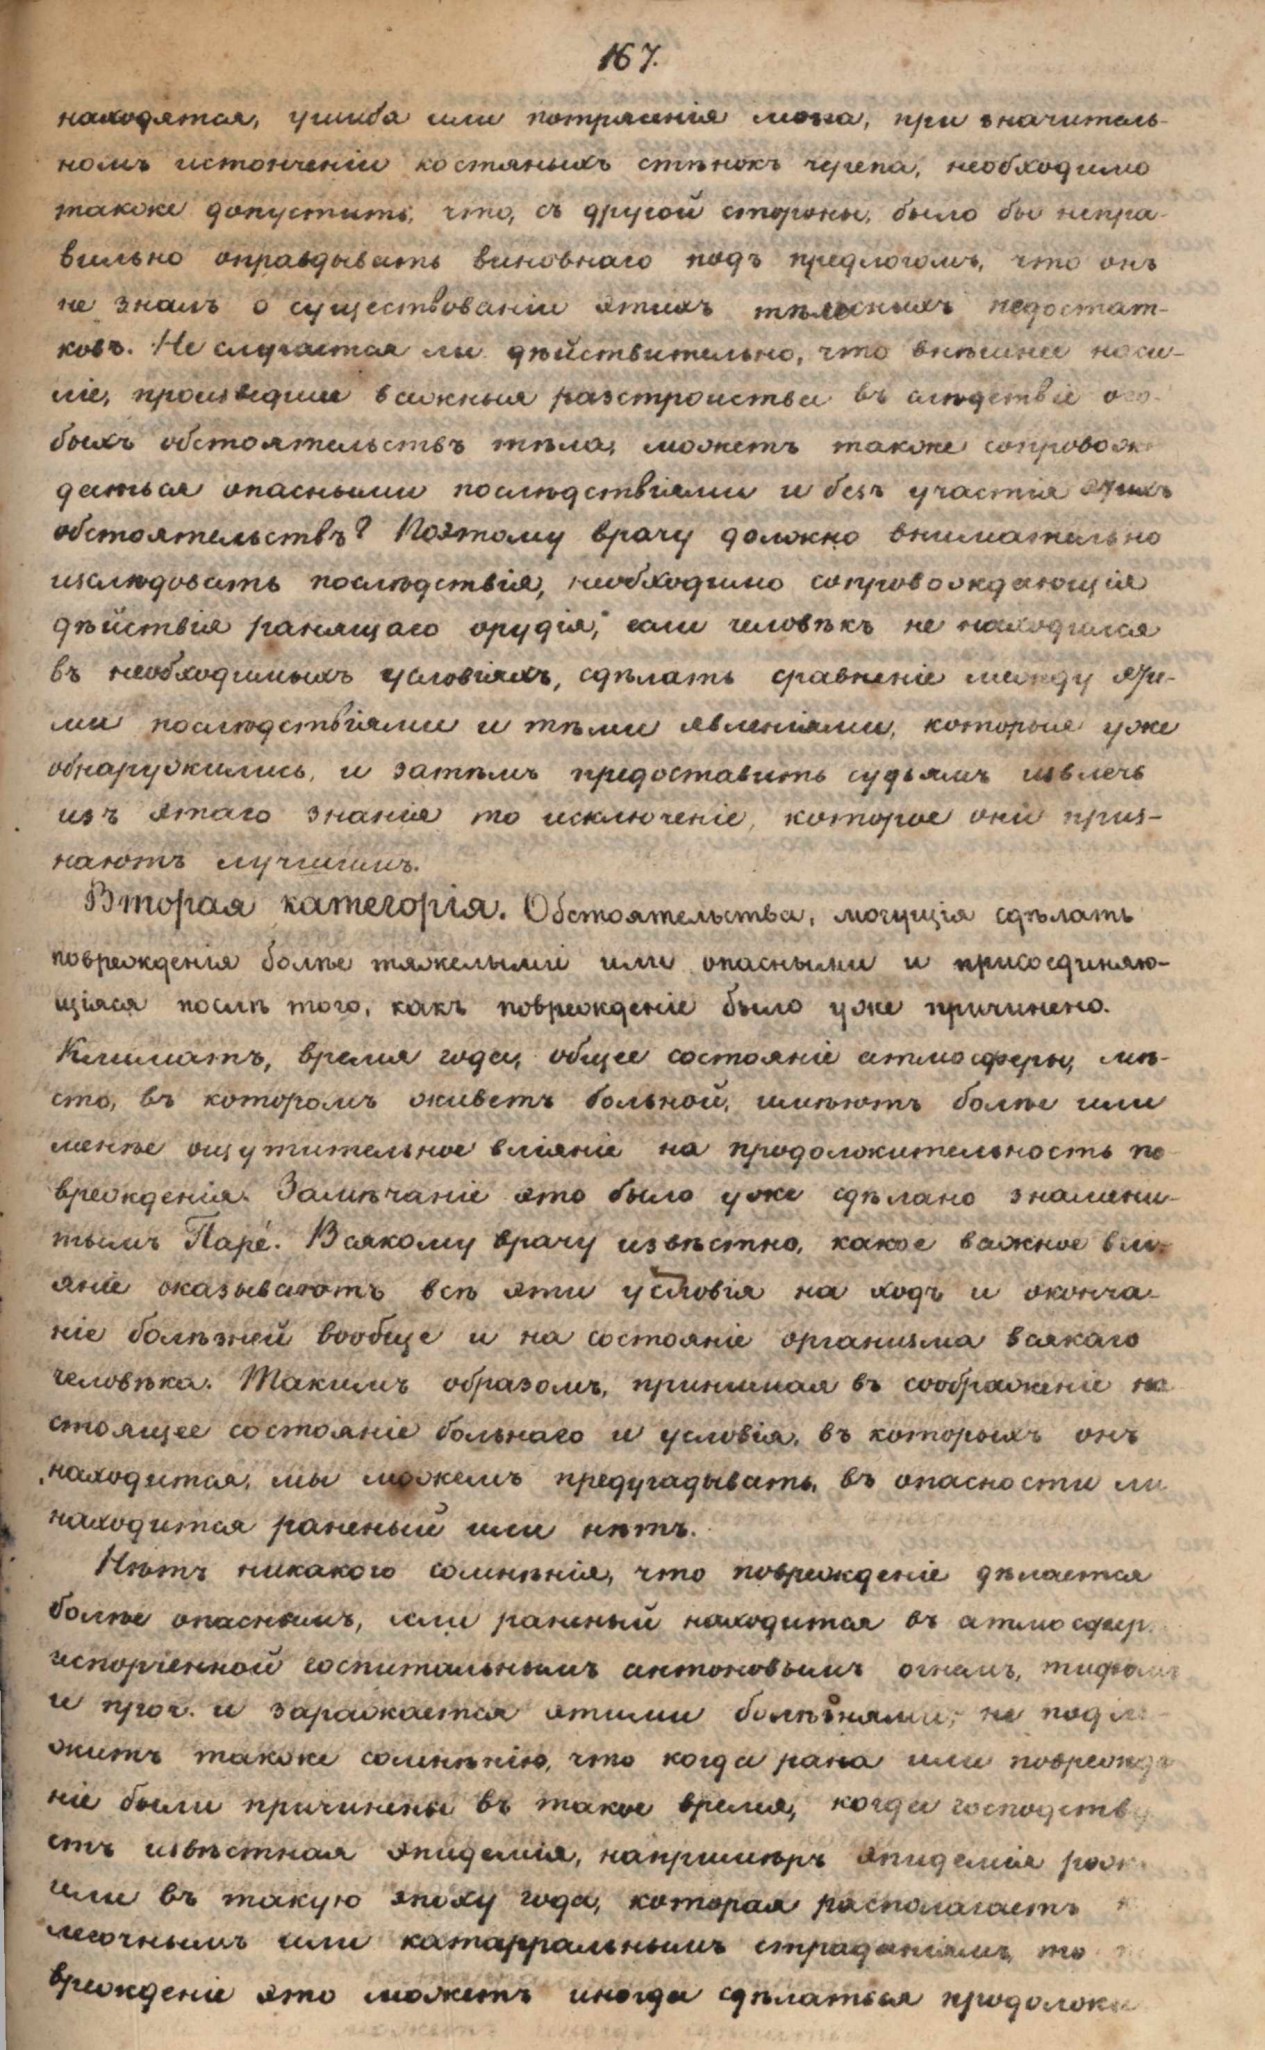 167.
находятся, ушиба или потрясенія мозга, при значитель-
номъ истонченіи костяныхъ стѣнокъ черепа, необходимо
также допустить, что, съ другой стороны, было бы непра-
вильно оправдывать виновнаго подъ предлогомъ, что онъ
не зналъ о существованіи этихъ тѣлесныхъ недостат-
ковъ. Не случается ли дѣйствительно, что внѣшнее наси-
ліе, произведшее важныя разстройства въ слѣдствіе осо-
быхъ обстоятельствъ тѣла, можетъ также сопровож-
даться опасными послѣдствіями и безъ участія этихъ
обстоятельствъ? Поэтому врачу должно внимательно
изслѣдовать послѣдствія, необходимо сопровождающія
дѣйствія ранящаго орудія, если человѣкъ не находился
въ необходимыхъ условіяхъ, сдѣлать сравненіе между эти-
ми послѣдствіями и тѣми явленіями, которыя уже
обнаружились, и затѣмъ предоставить судьямъ извлечь
изъ этаго знанія то исключеніе, которое они приз-
наютъ лучшимъ.
Вторая категорія. Обстоятельства, могущія сдѣлать
поврежденія болѣе тяжелыми или опасными и присоединяю-
щіяся послѣ того, какъ поврежденіе было уже причинено.
Климатъ, время года, общее состояніе атмосферы, мѣ-
сто, въ которомъ живетъ больной, имѣютъ болѣе или
менѣе ощутительное вліяніе на продолжительность по-
врежденія. Замѣчаніе это было уже сдѣлано знамени-
тымъ Парé. Всякому врачу извѣстно, какое важное влі-
яніе оказываютъ всѣ эти условія на ходъ и оконча-
ніе болѣзней вообще и на состояніе организма всякаго
человѣка. Такимъ образомъ, принимая въ соображеніе на
стоящее состояніе больнаго и условія, въ которыхъ онъ
находится, мы можемъ предугадывать, въ опасности ли
находится раненый или нѣтъ.
Нѣтъ никакого сомнѣнія, что поврежденіе дѣлается
болѣе опаснымъ, если раненый находится въ атмосфер
испорченной госпитальнымъ антоновымъ огнемъ, тифомъ
и проч. и заражается этими болѣзнями; не подле-
житъ также сомнѣнію, что когда рана или поврежде
ніе были причинены въ такое время, когда господству
етъ извѣстная эпидемія, напримѣръ эпидемія рож
или въ такую эпоху года, которая располагаетъ
легочнымъ или катарральнымъ страданіямъ, то
врежденіе это можетъ иногда сдѣлаться продолжи